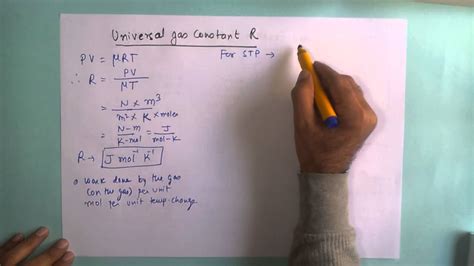 Universal gas Constant R
PV = μRT
∴ R = PV / μT
= N × m³ / m² × K × moles
= N-m / K-mol = J / mol-K
R → J mol⁻¹ K⁻¹
o Work done by the gas
(on the gas) per unit
mol per unit temp change.
For STP →